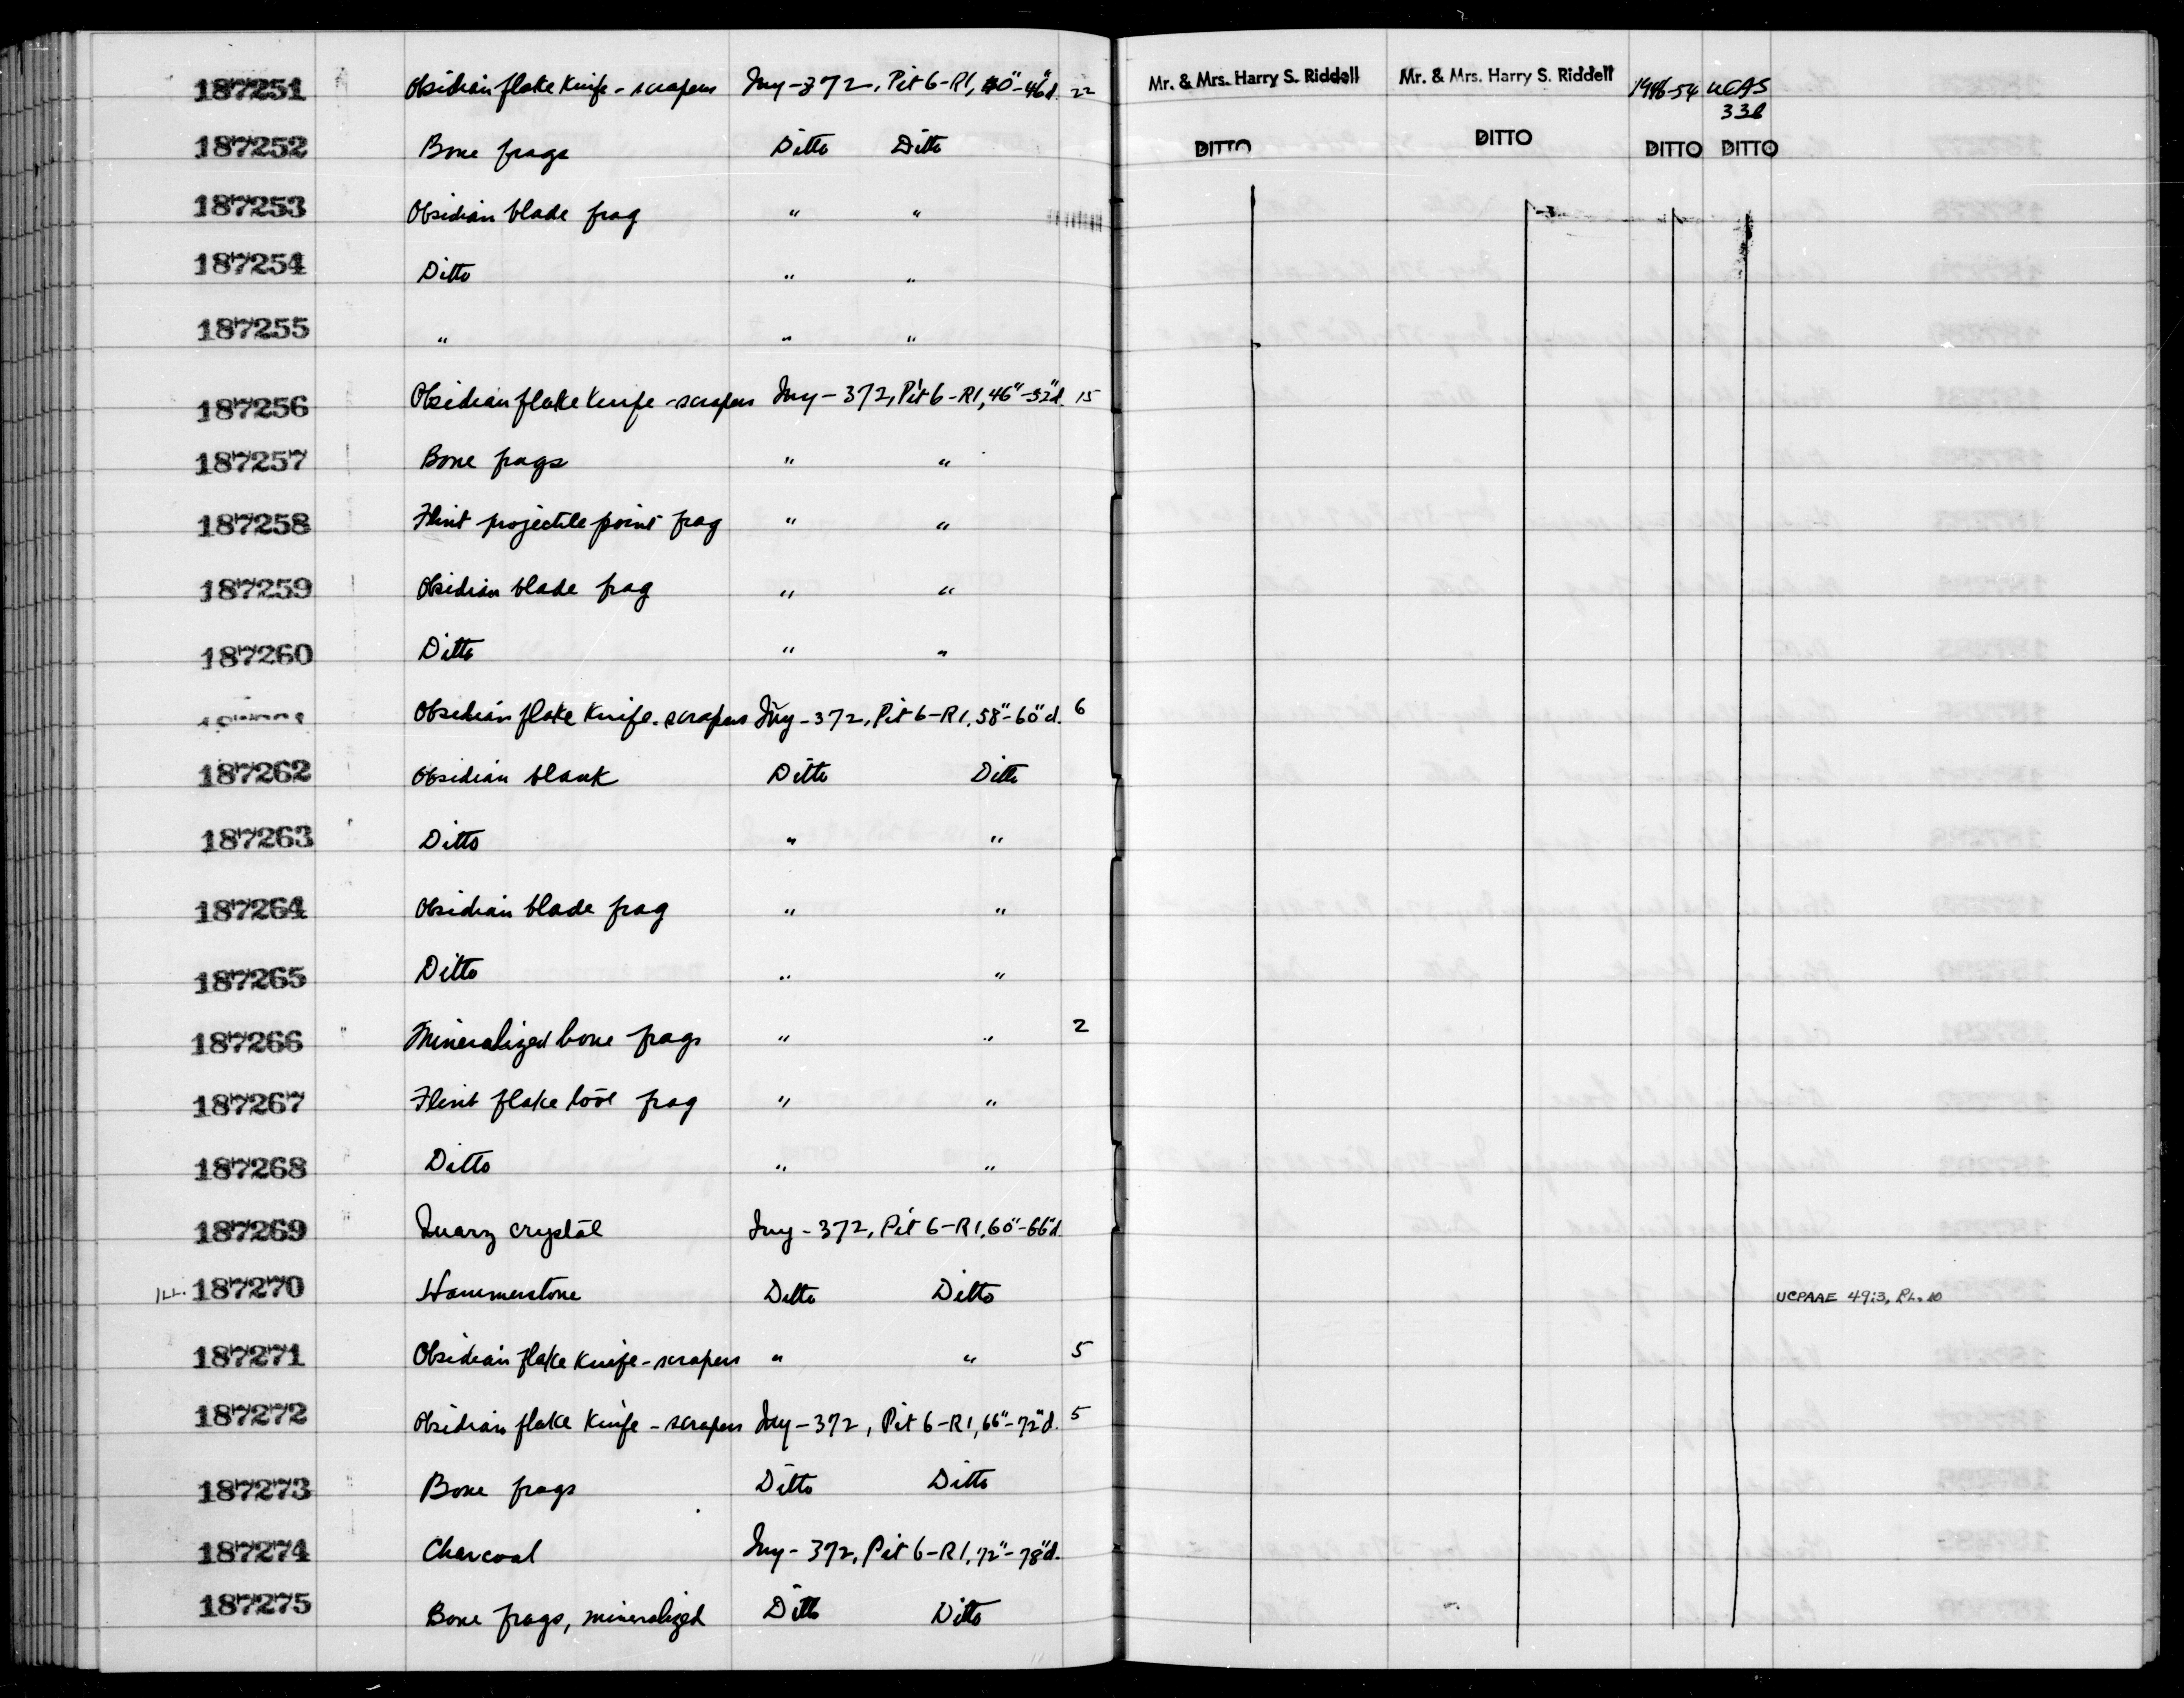 187251 Obsidian flake knife - scrapers Iny-372, Pit 6-R1, 40"-46"d. 22 Mr. & Mrs. Harry S. Riddell Mr. & Mrs. Harry S. Riddell 1946-54 UCAS
338
187252 Bone frags Ditto Ditto DITTO DITTO DITTO DITTO
187253 Obsidian blade frag " "
187254 Ditto " "
187255 " " "
187256 Obsidian flake knife - scrapers Iny-372, Pit 6-R1, 46"-52"d. 15
187257 Bone frags " "
187258 Flint projectile point frag " "
187259 Obsidian blade frag " "
187260 Ditto " "
Obsidian flake knife - scrapers Iny-372, Pit 6-R1, 58"-60"d. 6
187262 Obsidian blank Ditto Ditto
187263 Ditto " "
187264 Obsidian blade frag " "
187265 Ditto " "
187266 Mineralized bone frags " " 2
187267 Flint flake tool frag " "
187268 Ditto " "
187269 Quarz crystal Iny-372, Pit 6-R1, 60"-66"d.
ILL. 187270 Hammerstone Ditto Ditto UCPAAE 49:3, PL. 10
187271 Obsidian flake knife - scrapers " " 5
187272 Obsidian flake knife - scrapers Iny-372, Pit 6-R1, 66"-72"d. 5
187273 Bone frags Ditto Ditto
187274 Charcoal Iny-372, Pit 6-R1, 72"-78"d.
187275 Bone frags, mineralized Ditto Ditto